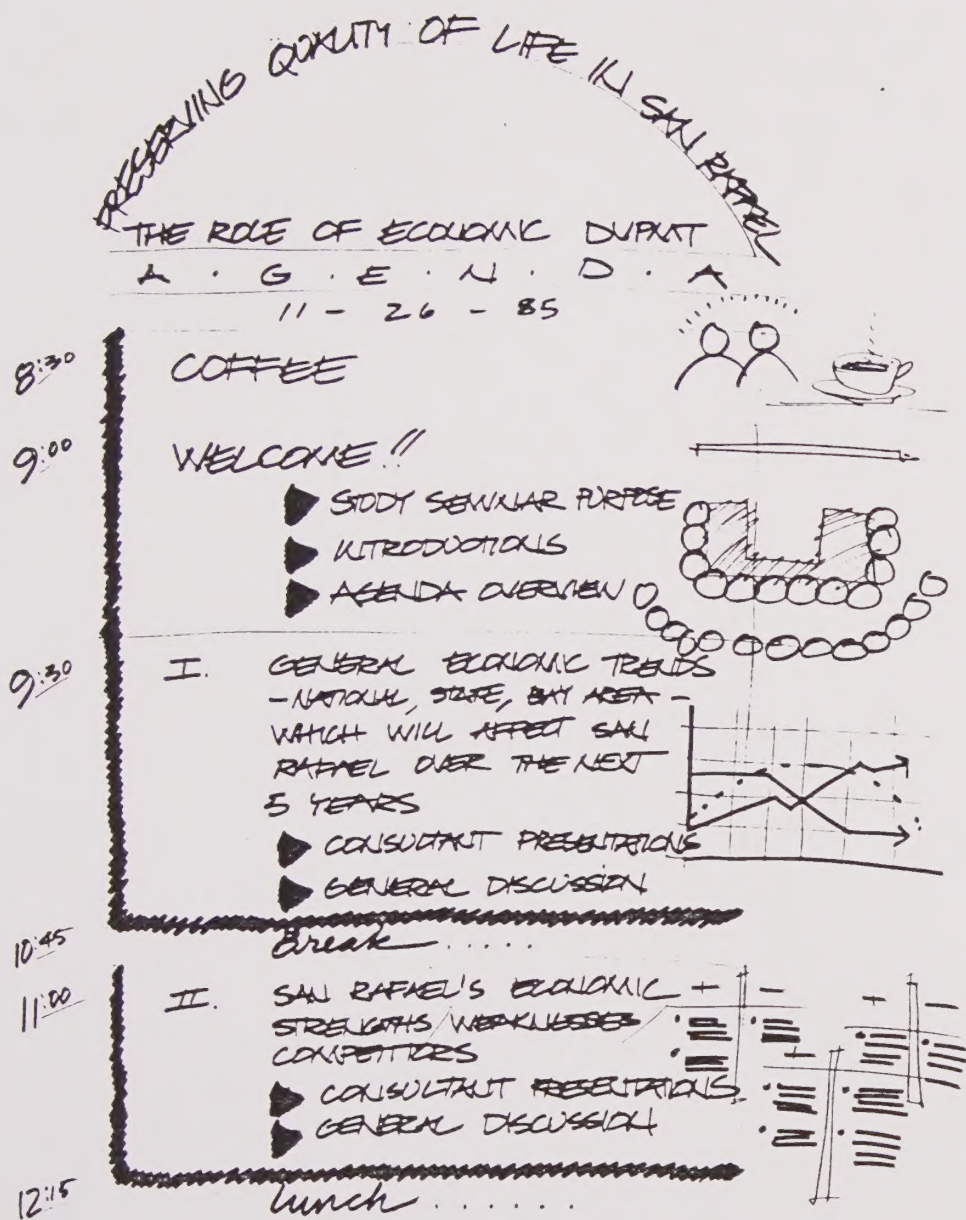 PRESERVING QUALITY OF LIFE IN SAN RAFAEL
THE ROLE OF ECONOMIC DVPMT
A · G · E · N · D · A
11 - 26 - 85
8:30 COFFEE
9:00 WELCOME!!
▶ STUDY SEMINAR PURPOSE
▶ INTRODUCTIONS
▶ AGENDA OVERVIEW
9:30 I. GENERAL ECONOMIC TRENDS
- NATIONAL, STATE, BAY AREA -
WHICH WILL AFFECT SAN
RAFAEL OVER THE NEXT
5 YEARS
▶ CONSULTANT PRESENTATIONS
▶ GENERAL DISCUSSION
10:45 Break ......
11:00 II. SAN RAFAEL'S ECONOMIC
STRENGTHS/WEAKNESSES/
COMPETITORS
▶ CONSULTANT PRESENTATIONS
▶ GENERAL DISCUSSION
12:15 Lunch .......
+ -
+ -
+ -